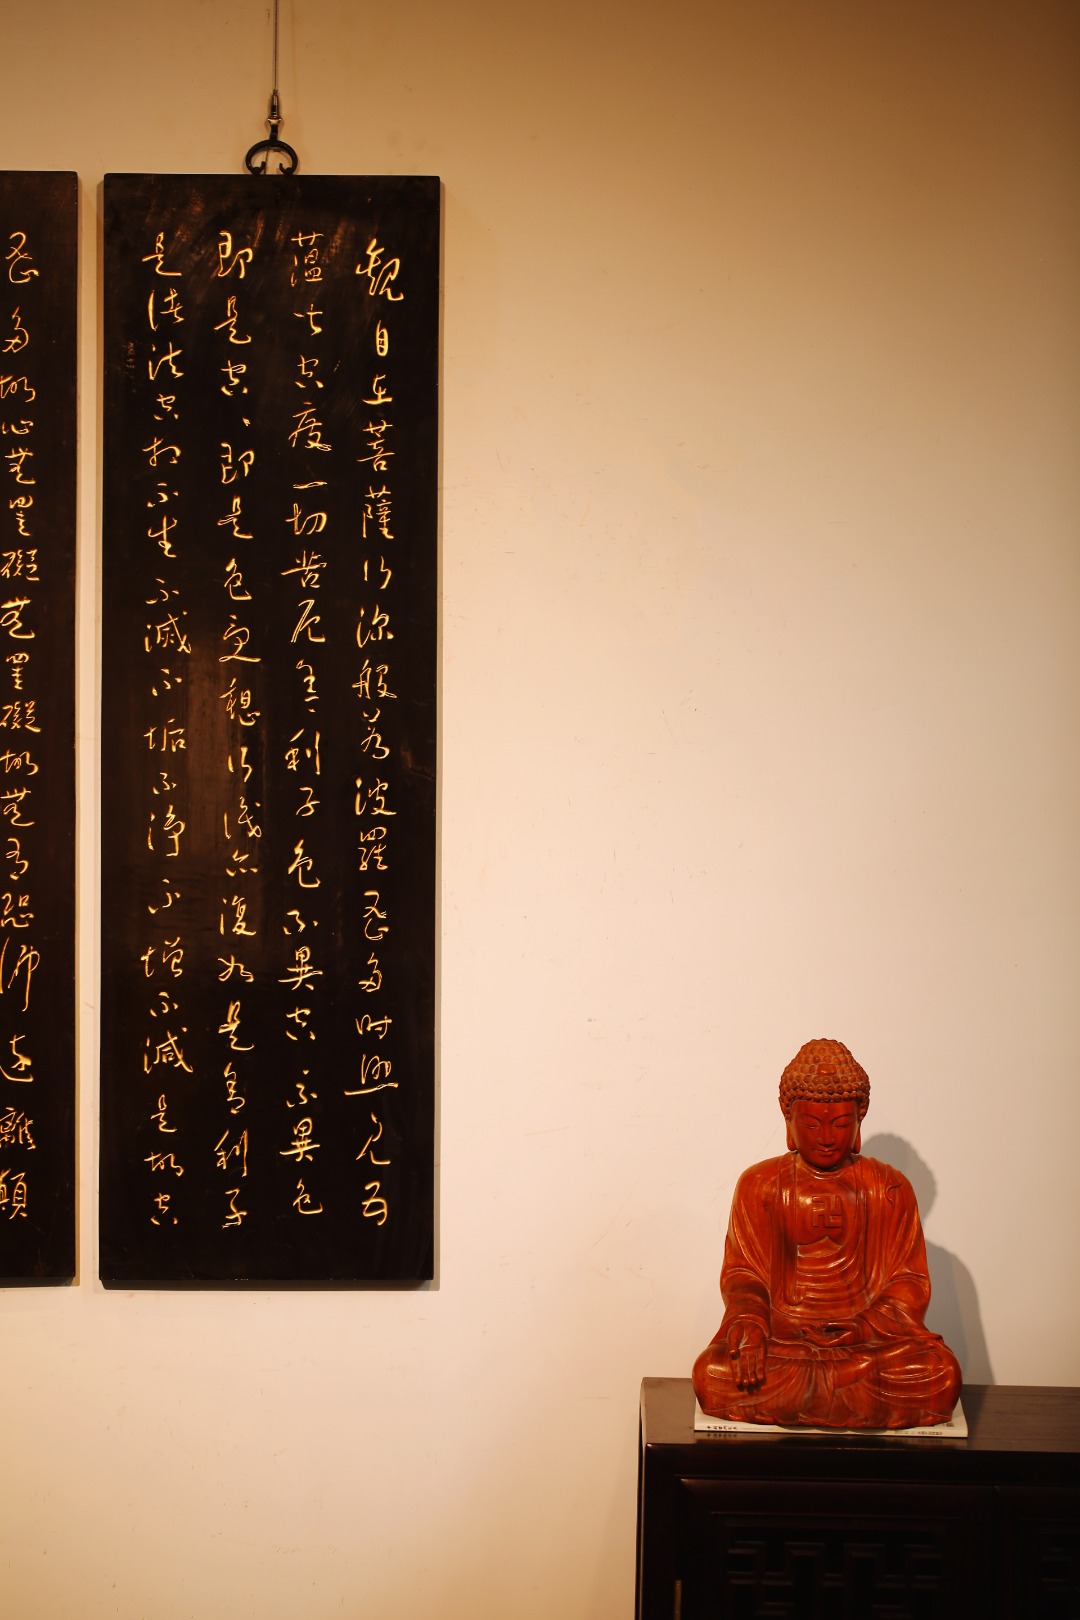 觀自在菩薩行深般若波羅蜜多時照見五
蘊皆空度一切苦厄舍利子色不異空不異色
即是空、即是色受想行識亦復如是舍利子
是諸法空相不生不滅不垢不淨不增不減是故空
蜜多故心無罣礙無罣礙故無有恐怖遠離顛